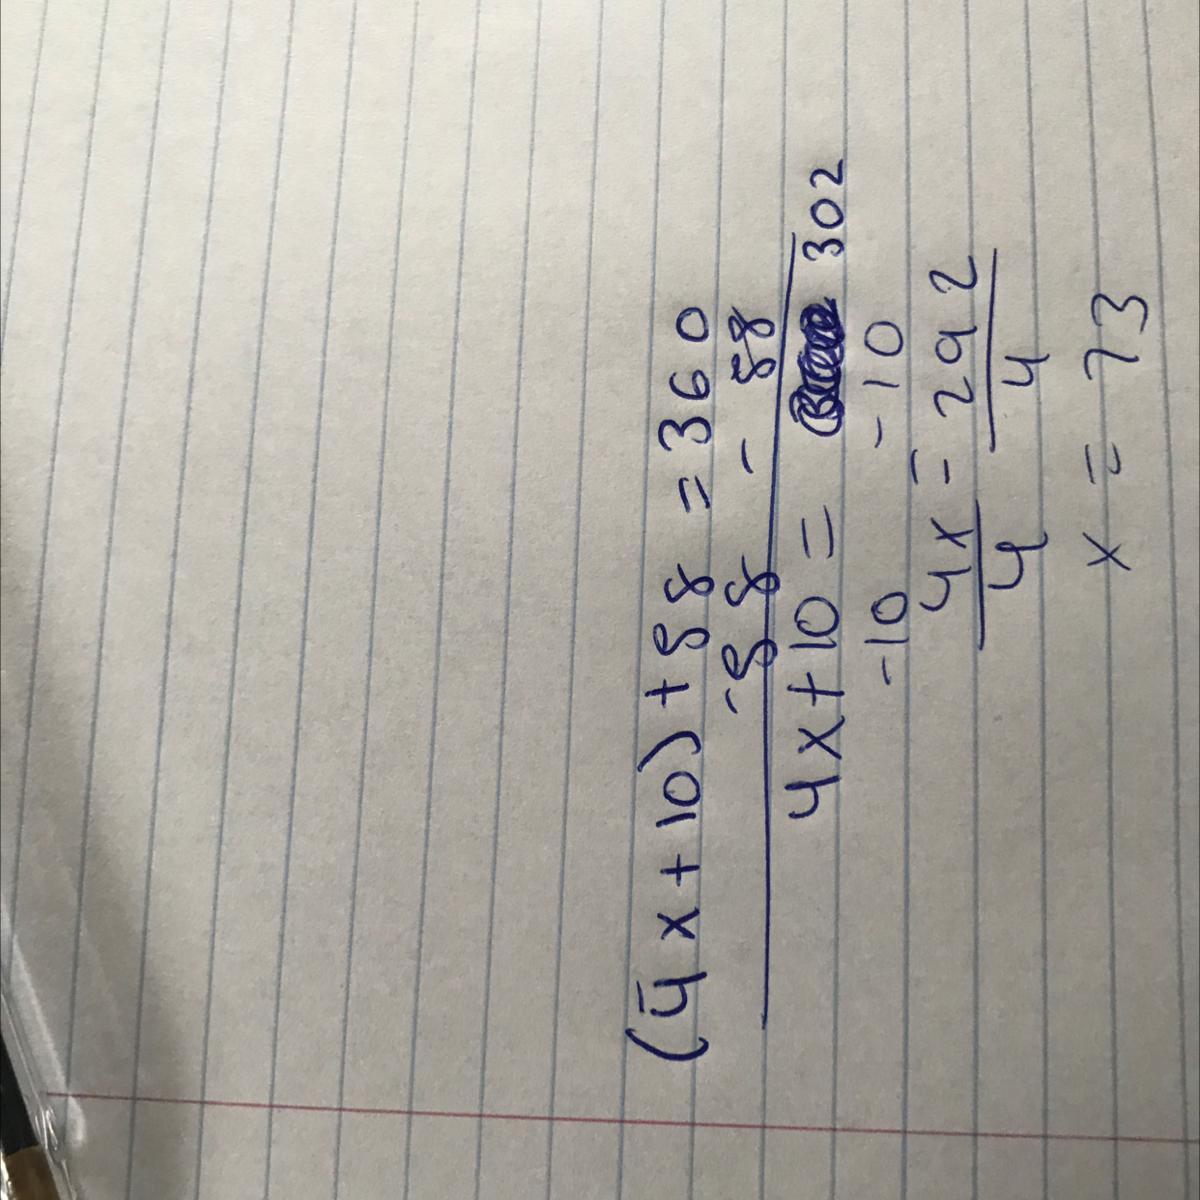 (4x+10)+88 = 360
-88 - 88
4x+10 = 302
-10 -10
4x = 292
4 4
x = 73